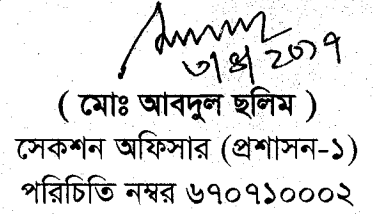 ৩/৪/২০১৭
( মোঃ আবদুল ছলিম )
সেকশন অফিসার (প্রশাসন-১)
পরিচিতি নম্বর ৬৭০৭১০০০২